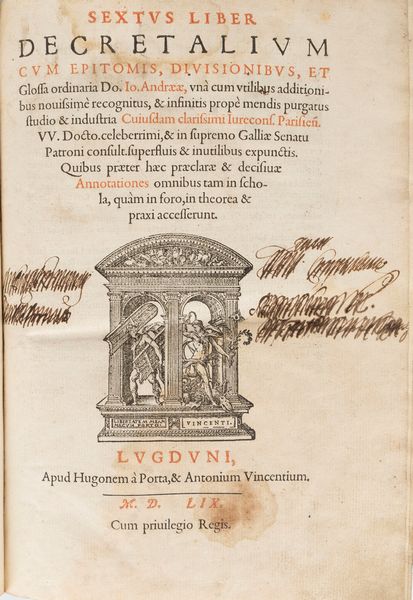 SEXTVS LIBER
DECRETALIVM
CVM EPITOMIS, DIVISIONIBVS, ET
Glossa ordinaria Do. Io. Andreæ, vnà cum vtilibus additioni-
bus nouissimè recognitus, & infinitis propè mendis purgatus
studio & industria Cuiusdam clarissimi Iurecons. Parisien.
VV. Docto. celeberrimi, & in supremo Galliæ Senatu
Patroni consult. superfluis & inutilibus expunctis.
Quibus præter hæc præclaræ & decisiuæ
Annotationes omnibus tam in scho-
la, quàm in foro, in theorea &
praxi accesserunt.
LIBERTATEM MEAM
MECVM PORTO.
VINCENTI.
LVGDVNI,
Apud Hugonem à Porta, & Antonium Vincentium.
M. D. LIX.
Cum priuilegio Regis.